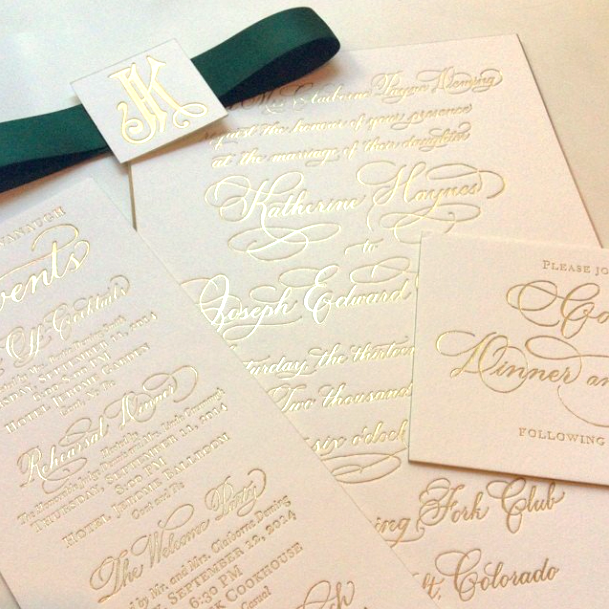 JK
Claiborne Payan Deming
request the honour of your presence
at the marriage of their daughter
Katherine Haynes
to
Joseph Edward
Saturday, the thirteen
Two thousand
six o'clock
ing Fork Club
t, Colorado
VANAUGH
vents
Off Cocktails
Hotel Jerome Garden
Rehearsal Dinner
Hosted by
Thursday, September 11, 2014
Hotel Jerome Ballroom
Coat and Tie
The Welcome Party
by Mr. and Mrs. Claiborne Deming
September 12, 2014
6:30 PM
Cookhouse
Casual
Please jo
Co
Dinner an
Following